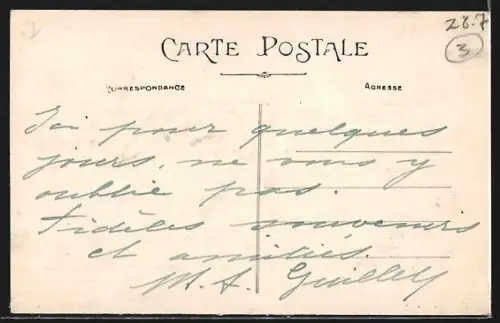 28.7
3
CARTE POSTALE
CORRESPONDANCE
ADRESSE
Ici pour quelques
jours, ne vous y
oublie pas.
Fidèles souvenirs
et amitiés.
M. A. Guillet